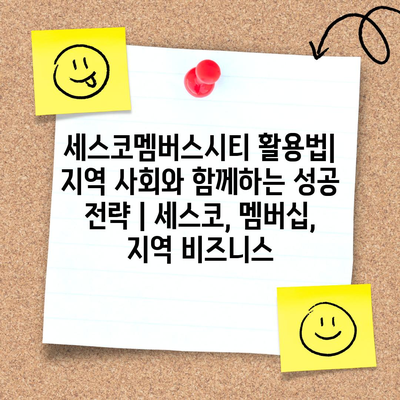 세스코멤버스시티 활용법|
지역 사회와 함께하는 성공
전략 | 세스코, 멤버십,
지역 비즈니스